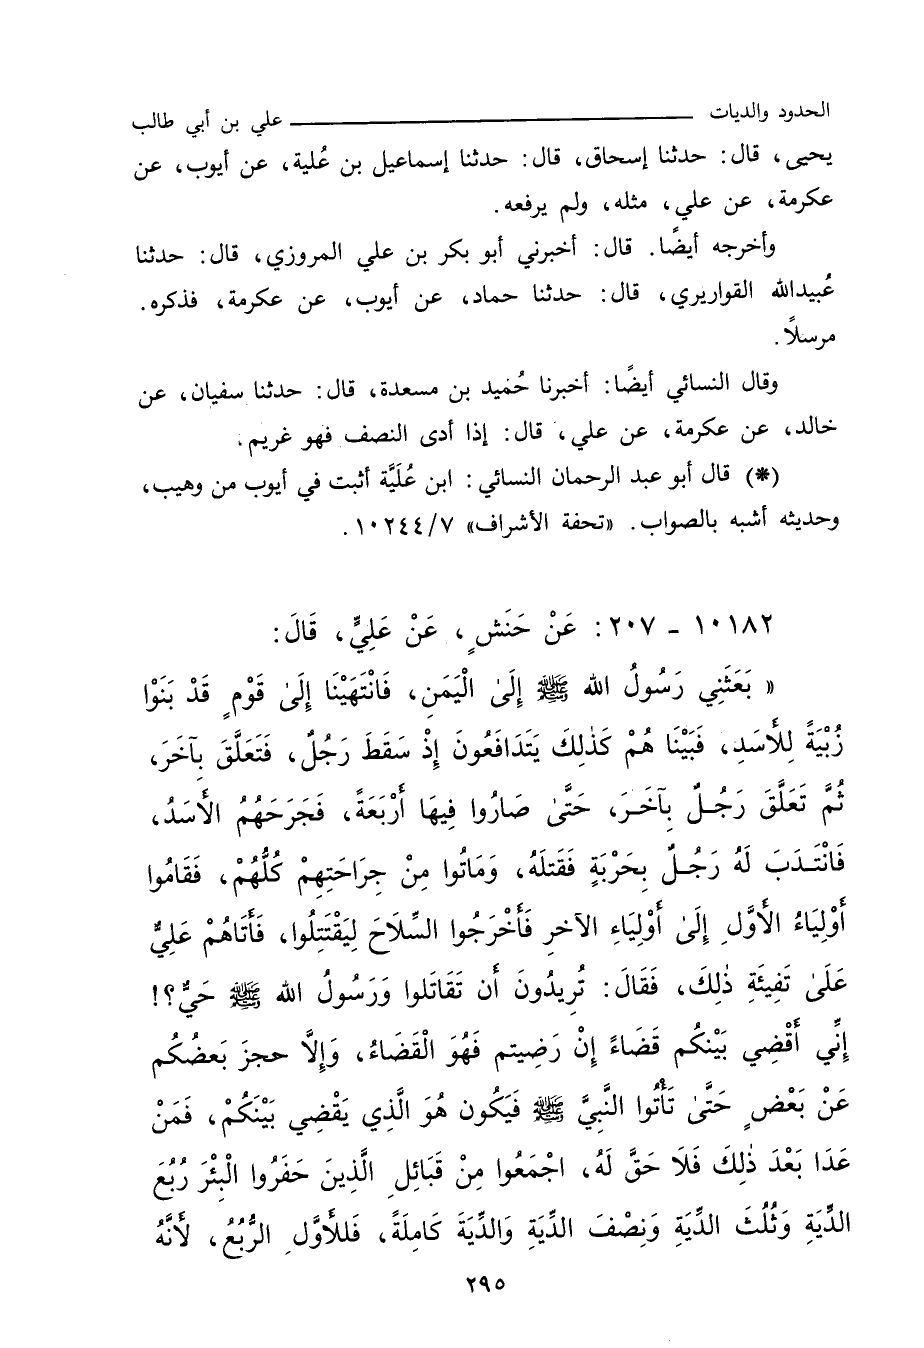 الحدود والديات ــــــــــــــــــــــــ علي بن أبي طالب
يحيى، قال: حدثنا إسحاق، قال: حدثنا إسماعيل بن عُلية، عن أيوب، عن
عكرمة، عن علي، مثله، ولم يرفعه.
وأخرجه أيضًا. قال: أخبرني أبو بكر بن علي المروزي، قال: حدثنا
عُبيدالله القواريري، قال: حدثنا حماد، عن أيوب، عن عكرمة، فذكره.
مرسلًا.
وقال النسائي أيضًا: أخبرنا حُميد بن مسعدة، قال: حدثنا سفيان، عن
خالد، عن عكرمة، عن علي، قال: إذا أدى النصف فهو غريم.
(*) قال أبو عبد الرحمان النسائي: ابن عُلَيَّة أثبت في أيوب من وهيب،
وحديثه أشبه بالصواب. «تحفة الأشراف» ١٠٢٤٤/٧.
١٠١٨٢ - ٢٠٧: عَنْ حَنَشٍ، عَنْ عَلِيٍّ، قَالَ:
« بَعَثَنِي رَسُولُ الله ﷺ إِلَىٰ الْيَمَنِ، فَانْتَهَيْنَا إِلَىٰ قَوْمٍ قَدْ بَنَوْا
زُبْيَةً لِلأَسَدِ، فَبَيْنَا هُمْ كَذٰلِكَ يَتَدَافَعُونَ إِذْ سَقَطَ رَجُلٌ، فَتَعَلَّقَ بِآخَرَ،
ثُمَّ تَعَلَّقَ رَجُلٌ بِآخَرَ، حَتَّىٰ صَارُوا فِيهَا أَرْبَعَةً، فَجَرَحَهُمُ الأَسَدُ،
فَانْتَدَبَ لَهُ رَجُلٌ بِحَرْبَةٍ فَقَتَلَهُ، وَمَاتُوا مِنْ جِرَاحَتِهِمْ كُلُّهُمْ، فَقَامُوا
أَوْلِيَاءُ الأَوَّلِ إِلَىٰ أَوْلِيَاءِ الآخرِ فَأَخْرَجُوا السِّلاَحَ لِيَقْتَتِلُوا، فَأَتَاهُمْ عَلِيٌّ
عَلَىٰ تَفِيئَةِ ذٰلِكَ، فَقَالَ: تُرِيدُونَ أَن تَقَاتَلوا وَرَسُولُ الله ﷺ حَيٌّ؟!
إِنِّي أَقْضِي بَيْنَكُم قَضَاءً إِنْ رَضِيتم فَهُوَ الْقَضَاءُ، وَإِلاَّ حجزَ بَعضُكُم
عَنْ بَعْضٍ حَتَّىٰ تَأْتُوا النَّبِيَّ ﷺ فَيَكُون هُوَ الَّذِي يَقْضِي بَيْنَكُمْ، فَمَنْ
عَدَا بَعْدَ ذٰلِكَ فَلَا حَقَّ لَهُ، اجْمَعُوا مِنْ قَبَائلِ الَّذِينَ حَفَرُوا الْبِئْرَ رُبُعَ
الدِّيَةِ وَثُلُثَ الدِّيَةِ وَنِصْفَ الدِّيَةِ وَالدِّيَةَ كَامِلَةً، فَللأَوَّلِ الرُّبُعُ، لأَنَّهُ
٢٩٥